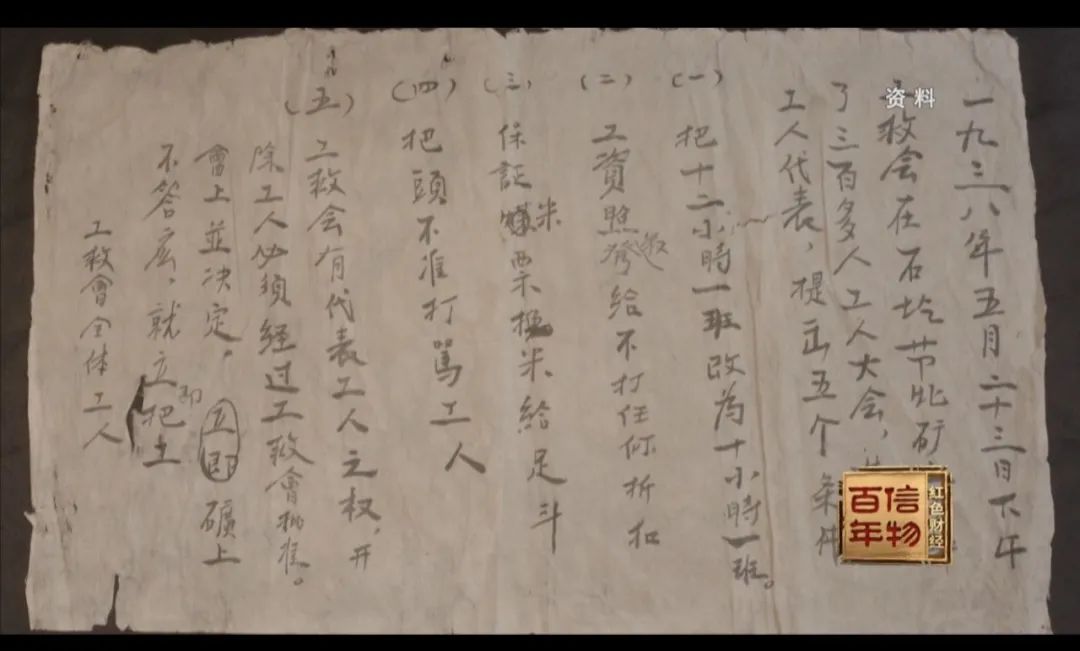 一九三八年五月二十三日下午
救会在石圪节矿
了三百多人工人大会，
工人代表，提出五个条件
（一）把十二小時一班改為十小時一班。
（二）工資照發給不打任何折扣
（三）保証米票換米給足斗
（四）把頭不准打罵工人
（五）工救会有代表工人之权，开
除工人必须經过工救會批准。
會上並决定，立即礦上
不答应，就立即把土
工救會全体工人
资料
百年信物
红色财经